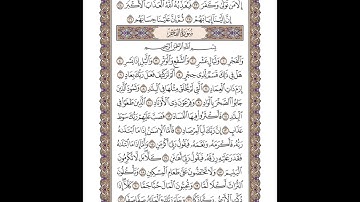 إِلَّا مَن تَوَلَّىٰ وَكَفَرَ ۝ فَيُعَذِّبُهُ اللَّهُ الْعَذَابَ الْأَكْبَرَ ۝
إِنَّ إِلَيْنَا إِيَابَهُمْ ۝ ثُمَّ إِنَّ عَلَيْنَا حِسَابَهُم ۝
سُورَةُ الفَجْرِ
بِسْمِ اللَّهِ الرَّحْمَٰنِ الرَّحِيمِ
وَالْفَجْرِ ۝ وَلَيَالٍ عَشْرٍ ۝ وَالشَّفْعِ وَالْوَتْرِ ۝ وَاللَّيْلِ إِذَا يَسْرِ ۝
هَلْ فِي ذَٰلِكَ قَسَمٌ لِّذِي حِجْرٍ ۝ أَلَمْ تَرَ كَيْفَ فَعَلَ رَبُّكَ بِعَادٍ ۝
إِرَمَ ذَاتِ الْعِمَادِ ۝ الَّتِي لَمْ يُخْلَقْ مِثْلُهَا فِي الْبِلَادِ ۝ وَثَمُودَ الَّذِينَ
جَابُوا الصَّخْرَ بِالْوَادِ ۝ وَفِرْعَوْنَ ذِي الْأَوْتَادِ ۝ الَّذِينَ طَغَوْا فِي
الْبِلَادِ ۝ فَأَكْثَرُوا فِيهَا الْفَسَادَ ۝ فَصَبَّ عَلَيْهِمْ رَبُّكَ سَوْطَ
عَذَابٍ ۝ إِنَّ رَبَّكَ لَبِالْمِرْصَادِ ۝ فَأَمَّا الْإِنسَانُ إِذَا مَا ابْتَلَاهُ
رَبُّهُ فَأَكْرَمَهُ وَنَعَّمَهُ فَيَقُولُ رَبِّي أَكْرَمَنِ ۝ وَأَمَّا إِذَا مَا ابْتَلَاهُ
فَقَدَرَ عَلَيْهِ رِزْقَهُ فَيَقُولُ رَبِّي أَهَانَنِ ۝ كَلَّا بَل لَّا تُكْرِمُونَ
الْيَتِيمَ ۝ وَلَا تَحَاضُّونَ عَلَىٰ طَعَامِ الْمِسْكِينِ ۝ وَتَأْكُلُونَ
التُّرَاثَ أَكْلًا لَّمًّا ۝ وَتُحِبُّونَ الْمَالَ حُبًّا جَمًّا ۝ كَلَّا إِذَا
دُكَّتِ الْأَرْضُ دَكًّا دَكًّا ۝ وَجَاءَ رَبُّكَ وَالْمَلَكُ صَفًّا صَفًّا ۝